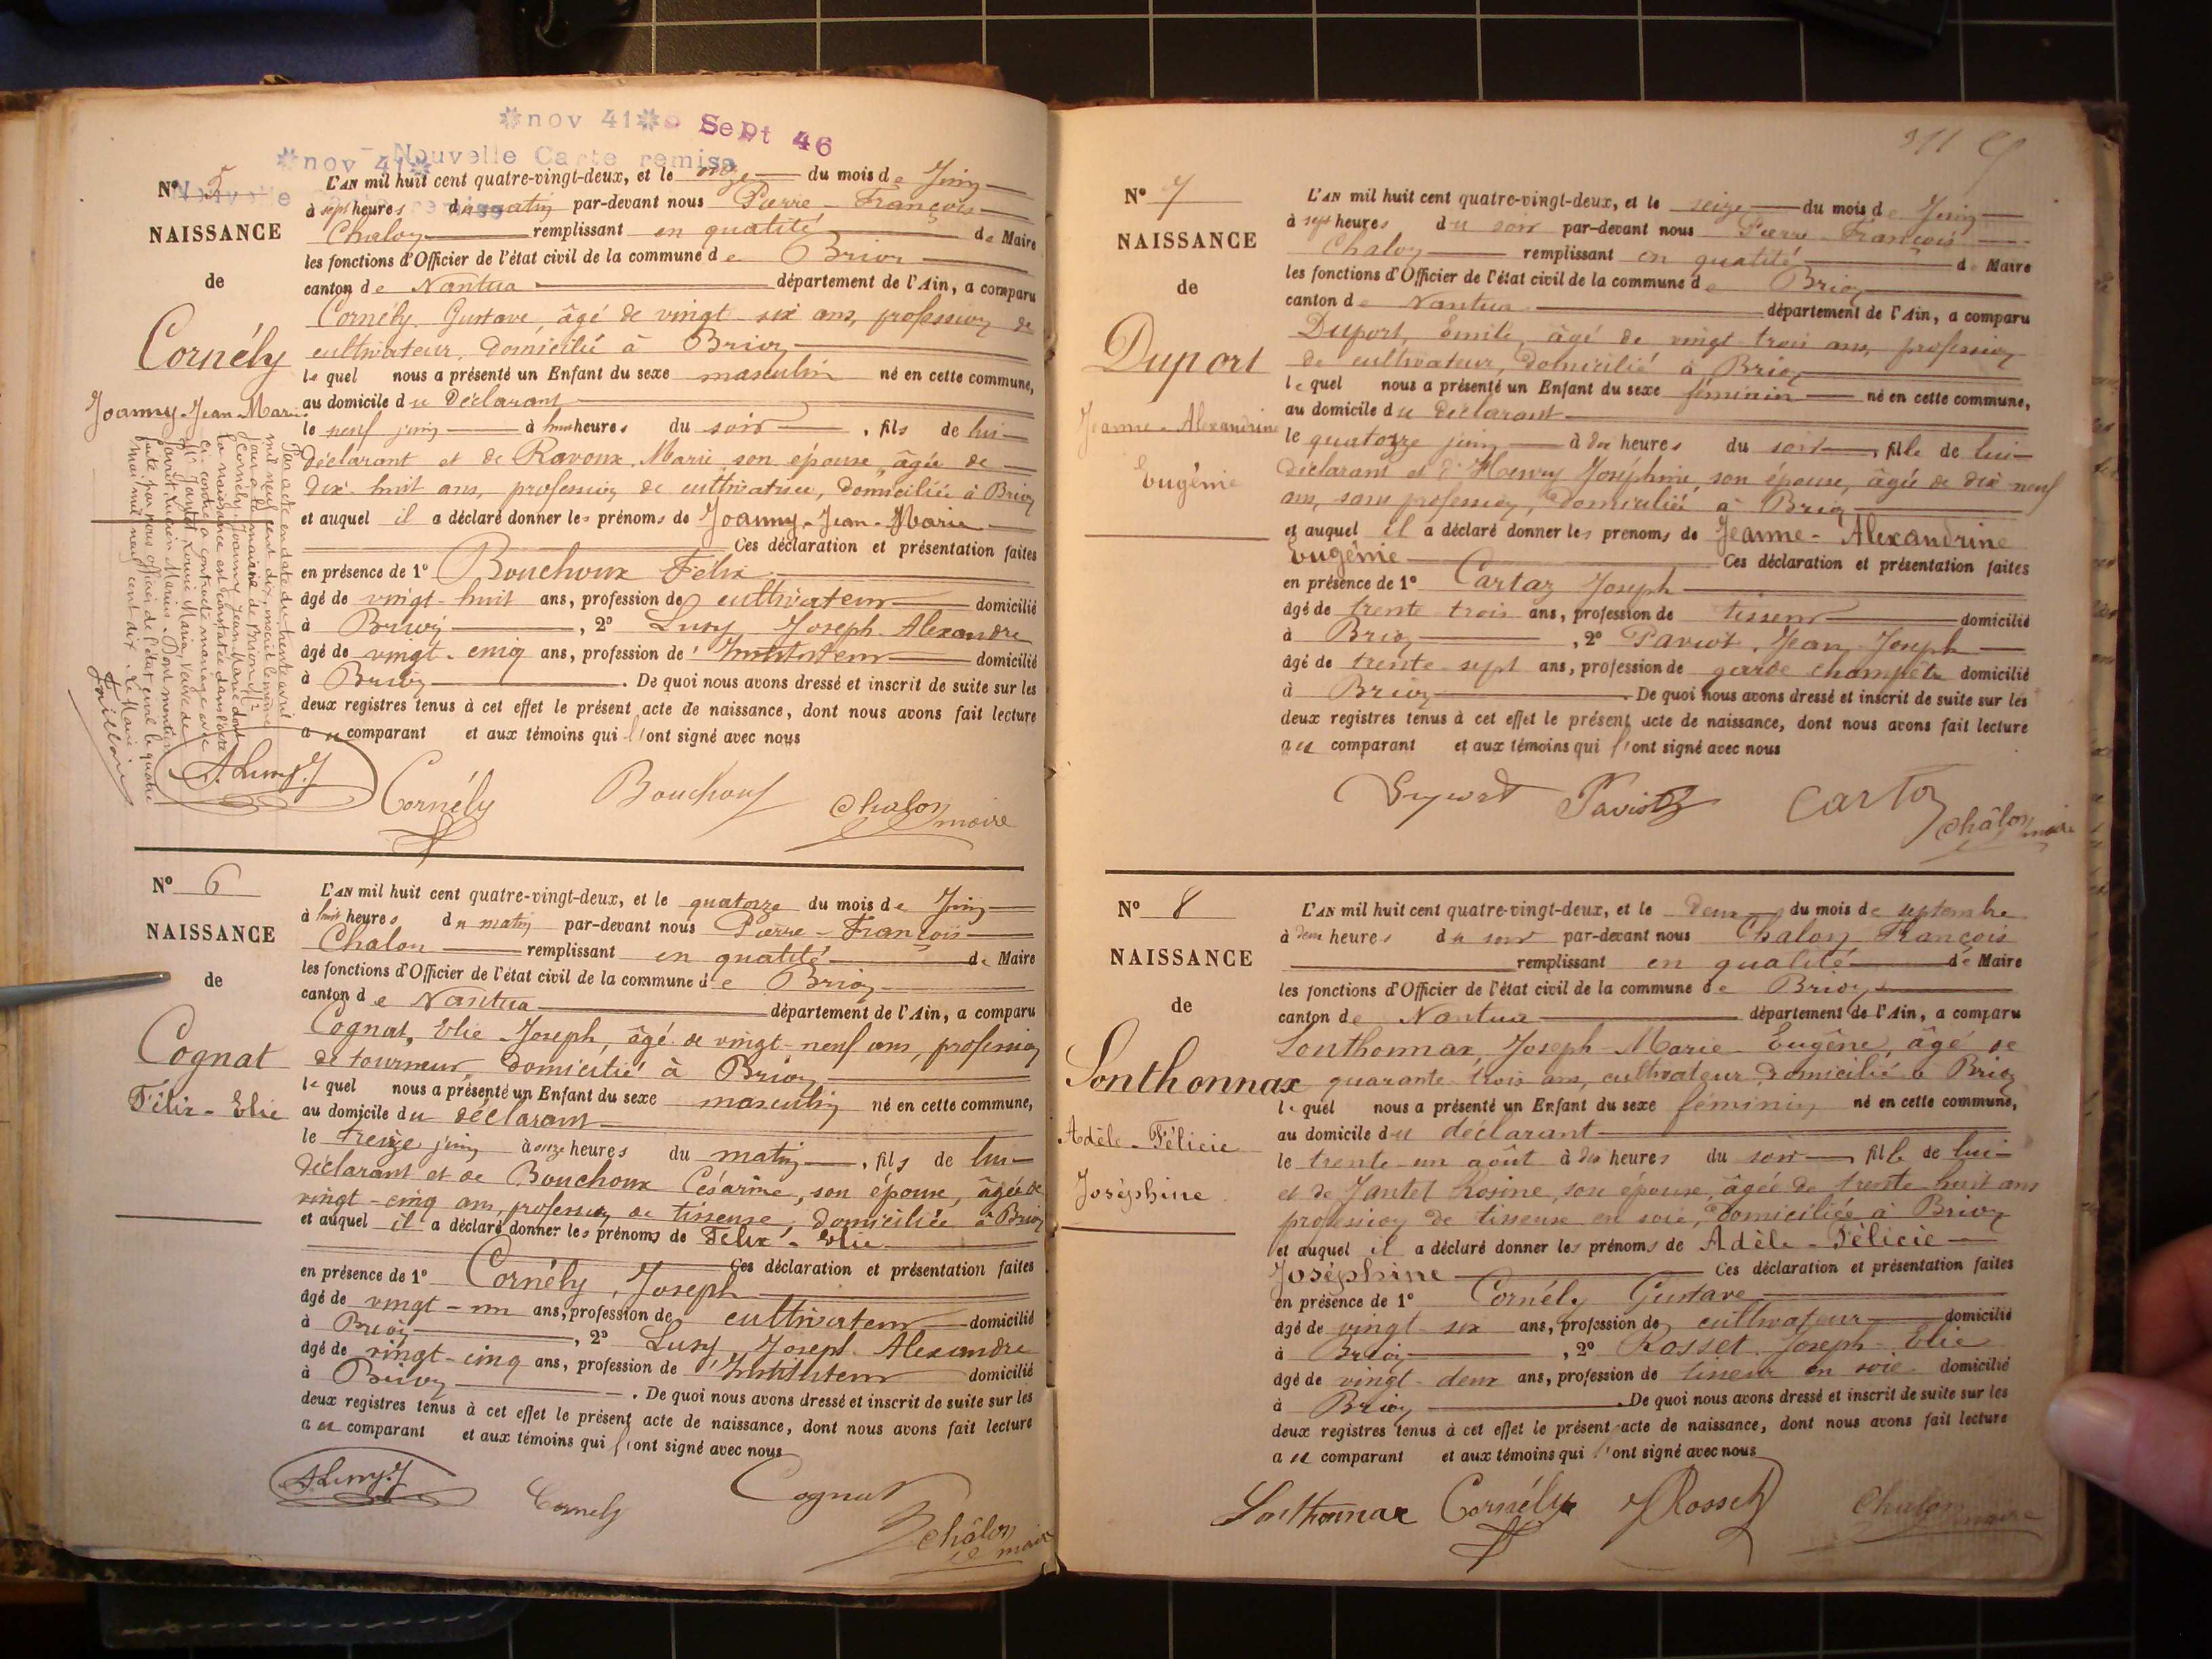 ✲nov 41✲ Sept 46
✲nov 41✲ Nouvelle Carte remise
Nouvelle remise
N° 5
NAISSANCE
de
Cornély
Joanny-Jean-Marie
L'AN mil huit cent quatre-vingt-deux, et le onze du mois de Juin
à sept heures du matin par-devant nous Pierre-François
Chalon remplissant en qualité de Maire
les fonctions d'Officier de l'état civil de la commune de Brion
canton de Nantua département de l'Ain, a comparu
Cornély Gustave, âgé de vingt six ans, profession de
cultivateur, domicilié à Brion
le quel nous a présenté un Enfant du sexe masculin né en cette commune,
au domicile du déclarant
le neuf juin à heures du soir, fils de lui
déclarant et de Ravoux, Marie son épouse, âgée de
dix-huit ans, profession de cultivatrice, domiciliée à Brion
et auquel il a déclaré donner les prénoms de Joanny-Jean-Marie
Ces déclaration et présentation faites
en présence de 1° Bouchoux Félix
âgé de vingt-huit ans, profession de cultivateur domicilié
à Brion, 2° Lusy Joseph Alexandre
âgé de vingt-cinq ans, profession de Instituteur domicilié
à Brion. De quoi nous avons dressé et inscrit de suite sur les
deux registres tenus à cet effet le présent acte de naissance, dont nous avons fait lecture
au comparant et aux témoins qui l'ont signé avec nous
Par acte en date du trente avril
mil neuf cent dix, inscrit le même
jour à la mairie de Brion,
Cornély, Joanny Jean Marie dont
la naissance est constatée dans l'acte
ci-contre a contracté mariage avec
Jantet, Louise Maria, veuve de
Paviot, Lucien Marius. Dont mention
faite par nous officier de l'état civil le quatre
mai mil neuf cent dix. Le Maire
Cornély Bouchoux Chalon maire
N° 6
NAISSANCE
de
Cognat
Félix-Elie
L'AN mil huit cent quatre-vingt-deux, et le quatorze du mois de Juin
à huit heures du matin par-devant nous Pierre-François
Chalon remplissant en qualité de Maire
les fonctions d'Officier de l'état civil de la commune de Brion
canton de Nantua département de l'Ain, a comparu
Cognat, Elie Joseph, âgé de vingt-neuf ans, profession
de tourneur, domicilié à Brion
le quel nous a présenté un Enfant du sexe masculin né en cette commune,
au domicile du déclarant
le treize juin à onze heures du matin, fils de lui
déclarant et de Bouchoux Césarine, son épouse, âgée de
vingt-cinq ans, profession de tisseuse, domiciliée à Brion
et auquel il a déclaré donner les prénoms de Félix-Elie
Ces déclaration et présentation faites
en présence de 1° Cornély, Joseph
âgé de vingt-un ans, profession de cultivateur domicilié
à Brion, 2° Lusy Joseph Alexandre
âgé de vingt-cinq ans, profession de Instituteur domicilié
à Brion. De quoi nous avons dressé et inscrit de suite sur les
deux registres tenus à cet effet le présent acte de naissance, dont nous avons fait lecture
au comparant et aux témoins qui l'ont signé avec nous
Cornély Cognat
Châlon maire
N° 7
NAISSANCE
de
Duport
Jeanne-Alexandrine
Eugénie
L'AN mil huit cent quatre-vingt-deux, et le seize du mois de Juin
à sept heures du soir par-devant nous Pierre-François
Chalon remplissant en qualité de Maire
les fonctions d'Officier de l'état civil de la commune de Brion
canton de Nantua département de l'Ain, a comparu
Duport, Emile, âgé de vingt trois ans, profession
de cultivateur, domicilié à Brion
le quel nous a présenté un Enfant du sexe féminin né en cette commune,
au domicile du déclarant
le quatorze juin à dix heures du soir, fille de lui
déclarant et d'Henry Joséphine, son épouse, âgée de dix neuf
ans, sans profession, domiciliée à Brion
et auquel il a déclaré donner les prénoms de Jeanne-Alexandrine
Eugénie Ces déclaration et présentation faites
en présence de 1° Cartaz Joseph
âgé de trente trois ans, profession de tisseur domicilié
à Brion, 2° Paviot, Jean-Joseph
âgé de trente sept ans, profession de garde champêtre domicilié
à Brion De quoi nous avons dressé et inscrit de suite sur les
deux registres tenus à cet effet le présent acte de naissance, dont nous avons fait lecture
au comparant et aux témoins qui l'ont signé avec nous
Duport Paviot Cartaz Châlon maire
N° 8
NAISSANCE
de
Sonthonnax
Adèle-Félicie
Joséphine
L'AN mil huit cent quatre-vingt-deux, et le deux du mois de septembre
à deux heures du soir par-devant nous Chalon François
remplissant en qualité de Maire
les fonctions d'Officier de l'état civil de la commune de Brion
canton de Nantua département de l'Ain, a comparu
Sonthonnax, Joseph-Marie-Eugène, âgé de
quarante trois ans, cultivateur, domicilié à Brion
le quel nous a présenté un Enfant du sexe féminin né en cette commune,
au domicile du déclarant
le trente-un août à dix heures du soir, fille de lui
et de Jantet Rosine, son épouse, âgée de trente huit ans
profession de tisseuse en soie, domiciliée à Brion
et auquel il a déclaré donner les prénoms de Adèle-Félicie
Joséphine Ces déclaration et présentation faites
en présence de 1° Cornély Gustave
âgé de vingt six ans, profession de cultivateur domicilié
à Brion, 2° Rosset Joseph-Elie
âgé de vingt-deux ans, profession de tisseur en soie domicilié
à Brion De quoi nous avons dressé et inscrit de suite sur les
deux registres tenus à cet effet le présent acte de naissance, dont nous avons fait lecture
au comparant et aux témoins qui l'ont signé avec nous
Sonthonnax Cornély Rosset Chalon maire